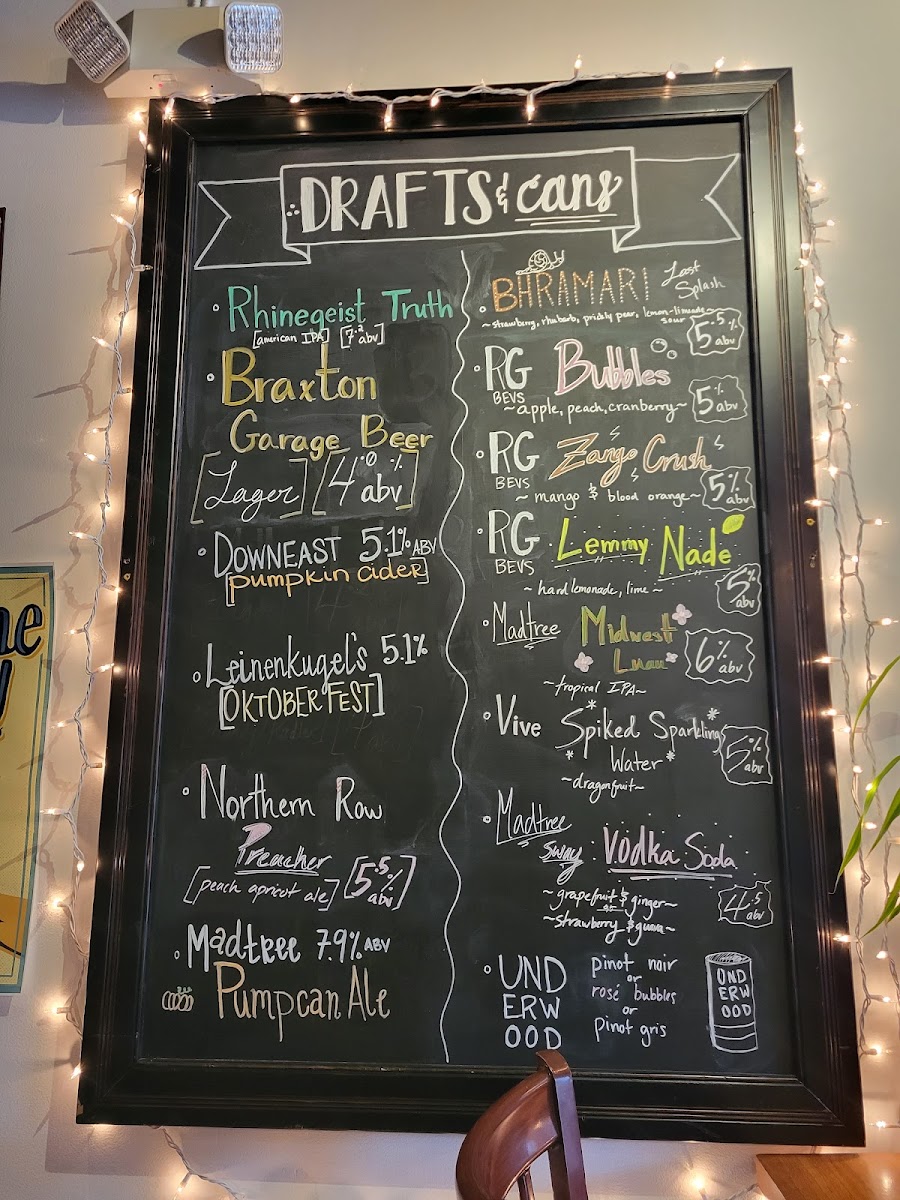 DRAFTS & cans
Rhinegeist Truth
[american IPA] [7.2 abv]
Braxton
Garage Beer
[Lager] [4.0% abv]
DOWNEAST 5.1% ABV
[pumpkin cider]
Leinenkugel's 5.1%
[OKTOBERFEST]
Northern Row
Preacher
[peach apricot ale] [5.5% abv]
Madtree 7.9% ABV
Pumpcan Ale
BHRAMARI Last Splash
~strawberry, rhubarb, prickly pear, lemon-limeade~
sour
5.5% abv
RG BEVS Bubbles
~apple, peach, cranberry~
5% abv
RG BEVS Zango Crush
~ mango & blood orange~
5% abv
RG BEVS Lemmy Nade
~ hard lemonade, lime ~
5% abv
Madtree Midwest
Luau
~tropical IPA~
6% abv
Vive *Spiked Sparkling*
*Water*
~dragonfruit~
5% abv
Madtree
Sway Vodka Soda
~grapefruit & ginger~
or
~strawberry & guava~
4.5 abv
UND
ERW
OOD
pinot noir
or
rosé bubbles
or
pinot gris
UND
ERW
OOD